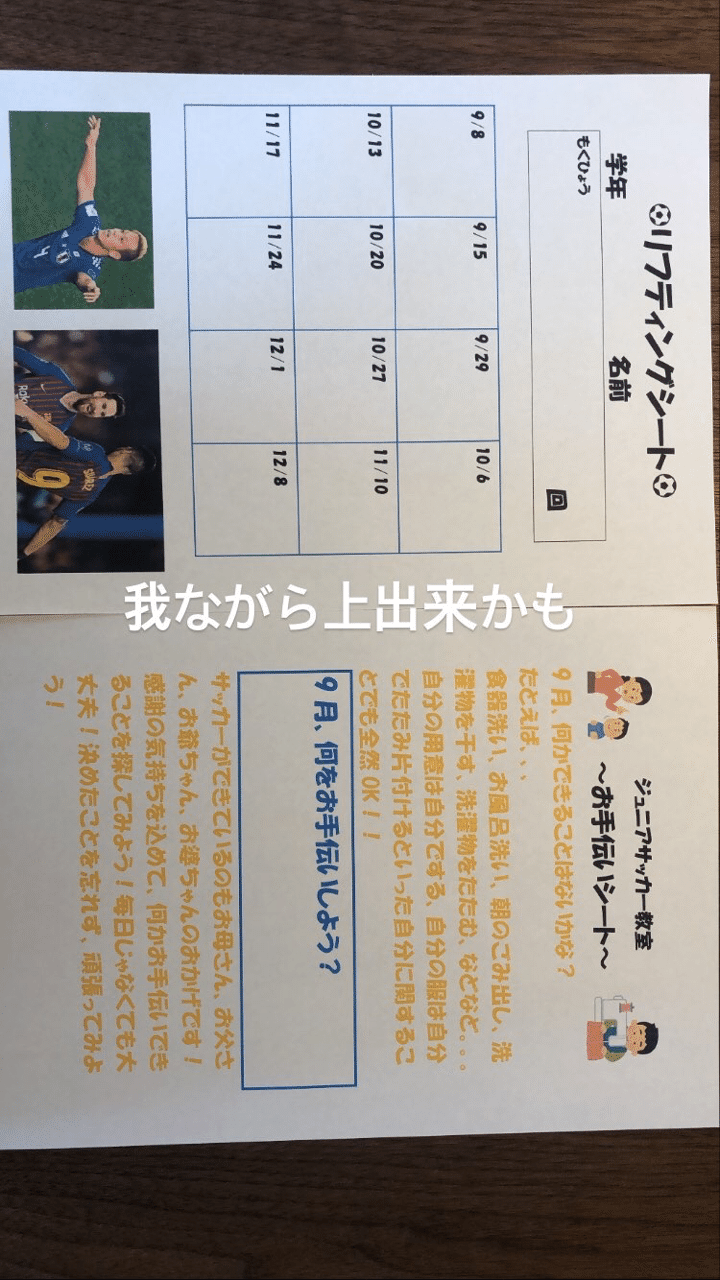 ⚽リフティングシート⚽
学年 名前
もくひょう
回
9/8 9/15 9/29 10/6
10/13 10/20 10/27 11/10
11/17 11/24 12/1 12/8
4
9
SUÁREZ
我ながら上出来かも
ジュニアサッカー教室
～お手伝いシート～
9月、何かできることはないかな？
たとえば、、
食器洗い、お風呂洗い、朝のごみ出し、洗
濯物を干す、洗濯物をたたむ、などなど。。。
自分の用意は自分でする、自分の服は自分
でたたみ片付けるといった自分に関するこ
とでも全然OK！！
9月、何をお手伝いしよう？
サッカーができているのもお母さん、お父さ
ん、お爺ちゃん、お婆ちゃんのおかげです！
感謝の気持ちを込めて、何かお手伝いでき
ることを探してみよう！毎日じゃなくても大
丈夫！決めたことを忘れず、頑張ってみよ
う！